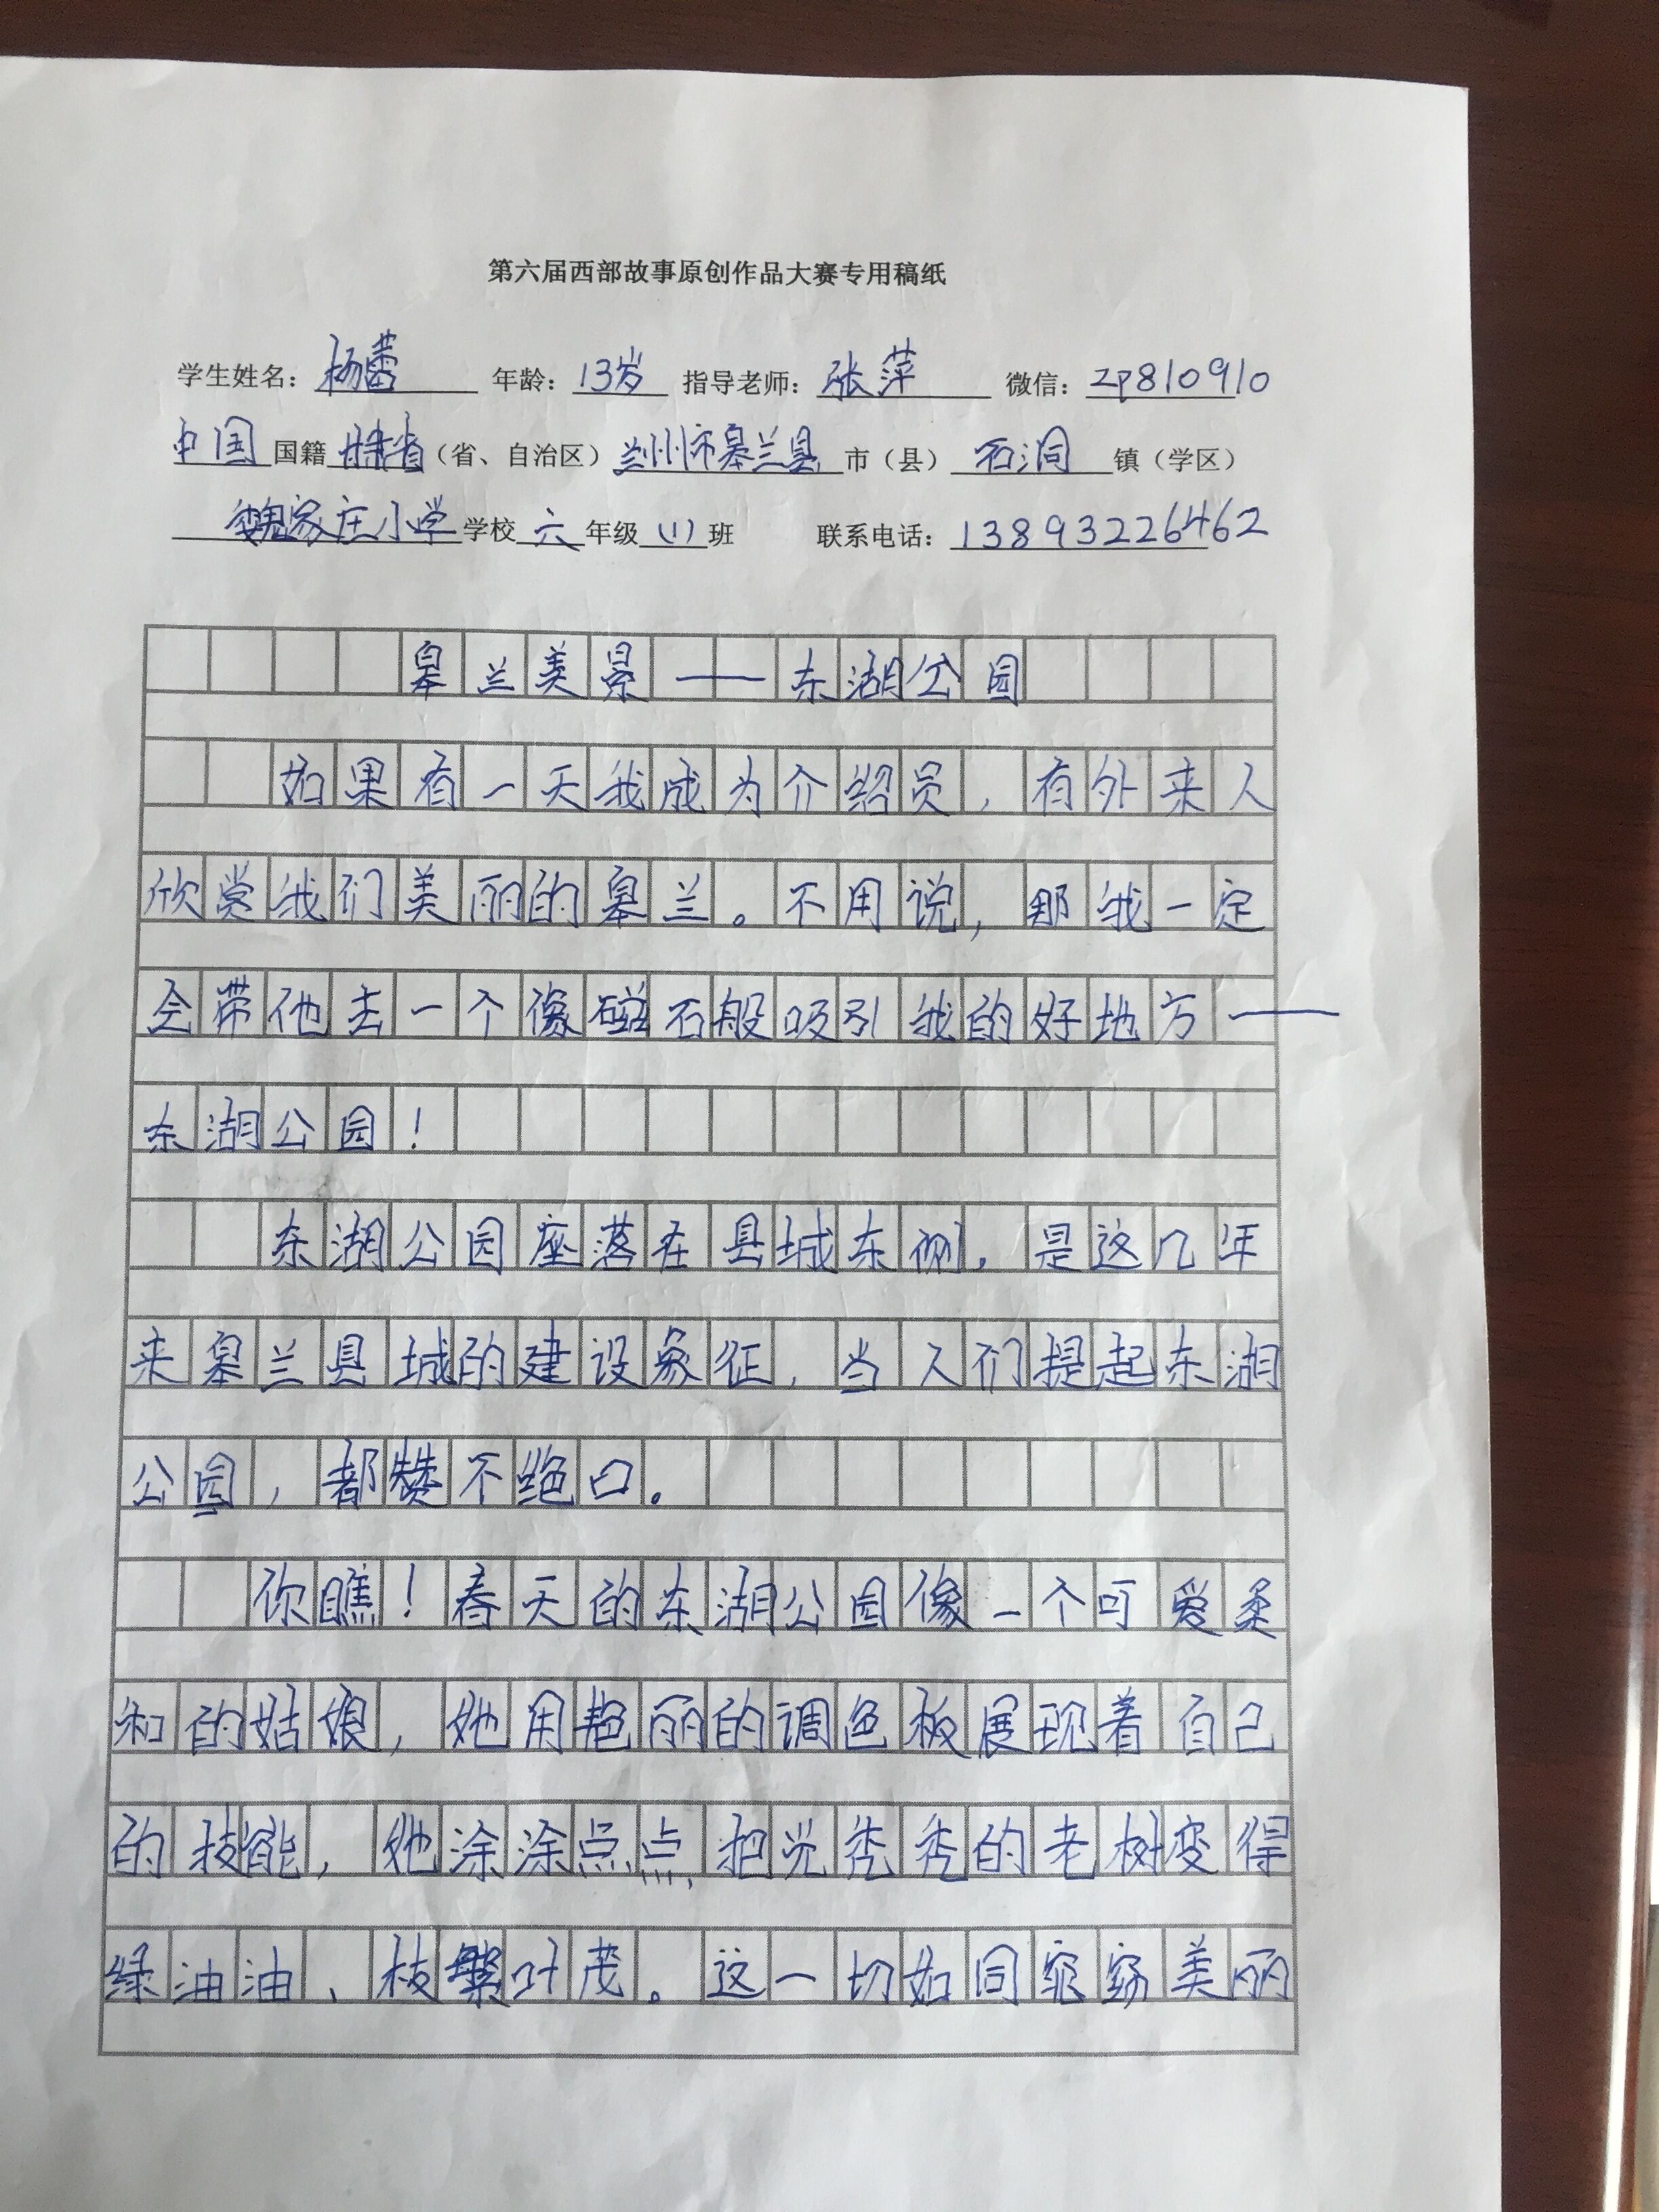 第六届西部故事原创作品大赛专用稿纸
学生姓名：杨蕾 年龄：13岁 指导老师：张萍 微信：zp810910
中国国籍甘肃省（省、自治区）兰州市皋兰县市（县）石洞镇（学区）
魏家庄小学学校六年级（1）班 联系电话：13893226462
皋兰美景——东湖公园
如果有一天我成为介绍员，有外来人
欣赏我们美丽的皋兰。不用说，那我一定
会带他去一个像磁石般吸引我的好地方——
东湖公园！
东湖公园座落在县城东侧，是这几年
来皋兰县城的建设象征，当人们提起东湖
公园，都赞不绝口。
你瞧！春天的东湖公园像一个可爱柔
和的姑娘，她用艳丽的调色板展现着自己
的技能，她涂涂点点，把光秃秃的老树变得
绿油油、枝繁叶茂。这一切如同窈窕美丽